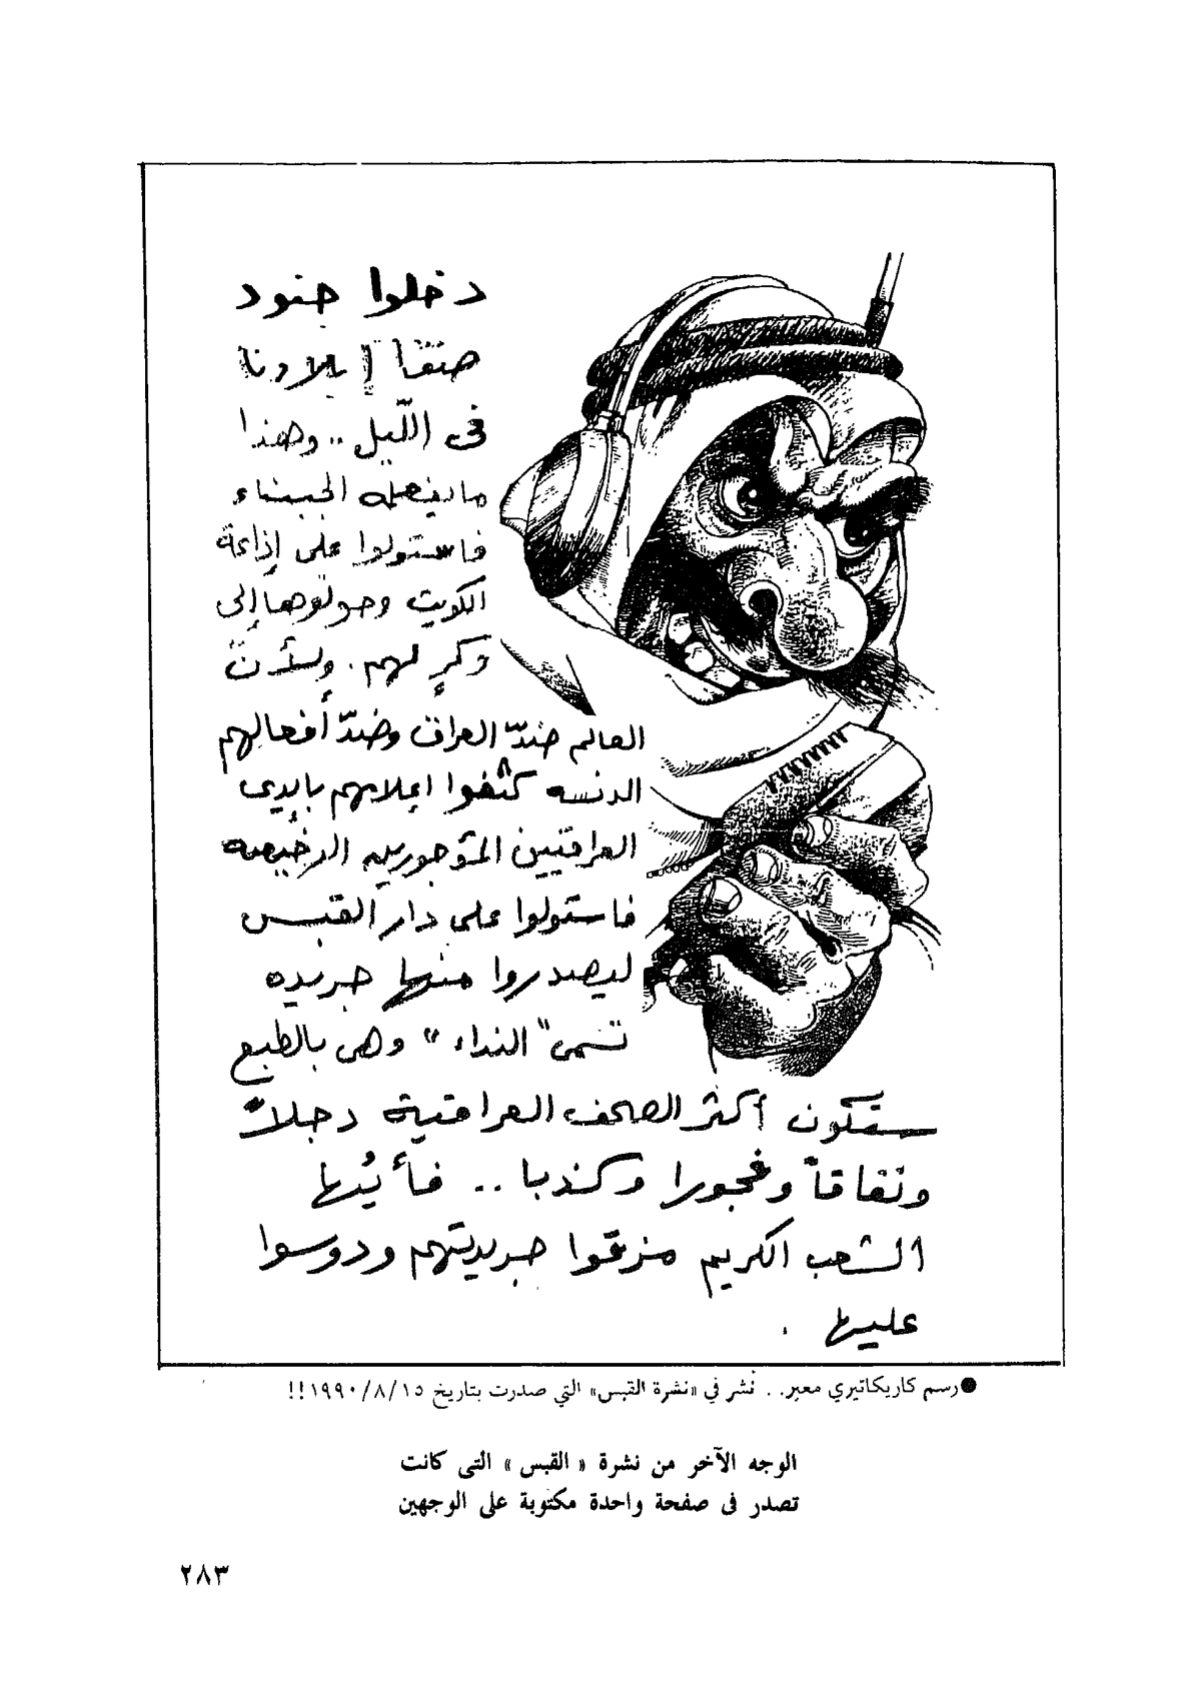 دخلوا جنود
صدّام بلادنا
في اللّيل .. وهذا
ما يفعله الجبناء
فاستولوا على إذاعة
الكويت وحولوها إلى
وكرٍ لهم. ولأنّ
العالم ضدّ العراق وضدّ أفعالهم
الدنسه كثفوا إعلامهم بأيدي
العراقيين المأجورين الرخيصه
فاستولوا على دار القبس
ليصدروا منها جريده
تسمى "النداء" وهي بالطبع
ستكون أكثر الصحف العراقية دجلاً
ونفاقاً وفجورا وكذبا .. فأيُها
الشعب الكريم مزقوا جريدتهم ودوسوا
عليها .
●رسم كاريكاتيري معبر. . نشر في «نشرة القبس» التي صدرت بتاريخ ١٩٩٠/٨/١٥!!
الوجه الآخر من نشرة « القبس » التى كانت
تصدر فى صفحة واحدة مكتوبة على الوجهين
٢٨٣